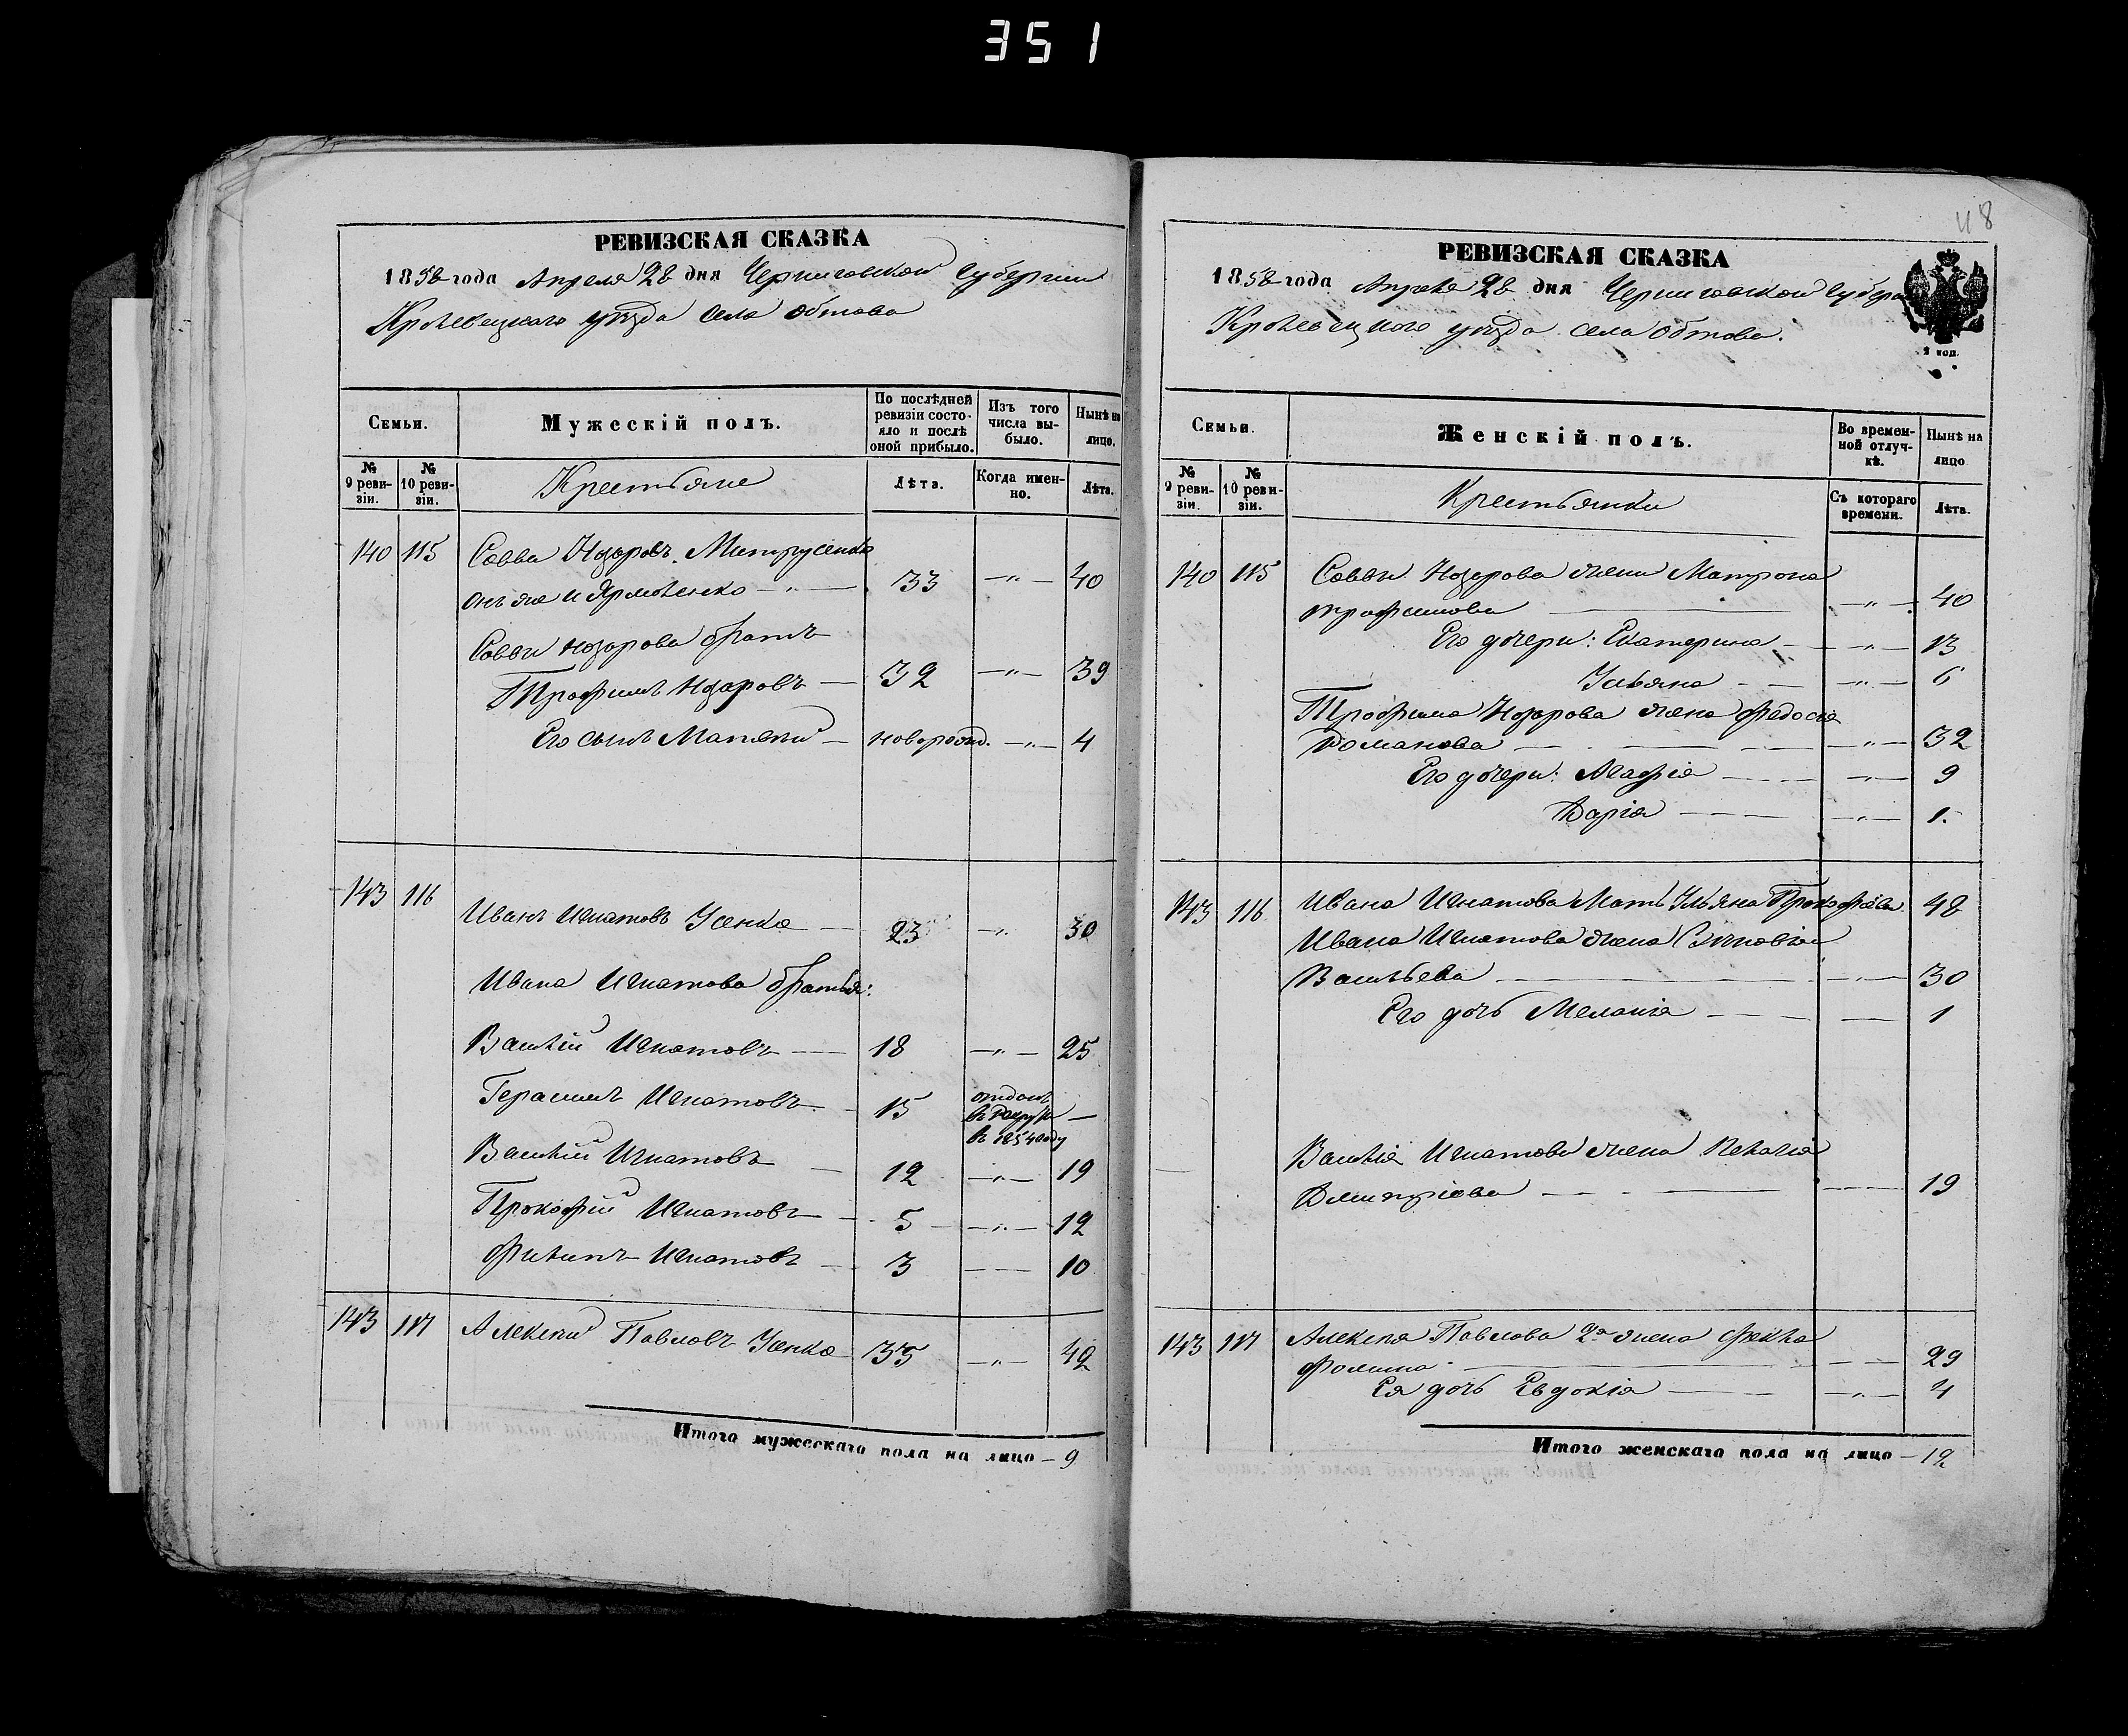 351
48
РЕВИЗСКАЯ СКАЗКА
1858 года Апреля 28 дня Черниговской Губернии
Кролевецкаго уѣзда Села Обтова
Семьи.
Мужескій полъ.
По послѣдней ревизіи состояло и послѣ оной прибыло.
Изъ того числа выбыло.
Нынѣ на лицо.
№ 9 ревизіи.
№ 10 ревизіи.
Крестьяне
Лѣта.
Когда именно.
Лѣта.
140 115 Савва Назаровъ Митрусенко
онъ же и Ярмоленко — 33 —"— 40
Саввы Назарова братъ
Трофимъ Назаровъ — 32 —"— 39
Его сынъ Матвѣй — новорожд. —"— 4
143 116
Иванъ Игнатовъ Усенко — 23 —"— 30
Ивана Игнатова братья:
Василій Игнатовъ — 18 —"— 25
Герасимъ Игнатовъ — 15 отданъ в рекруты в 1854 году —
Василій Игнатовъ — 12 —"— 19
Прокофій Игнатовъ — 5 —"— 12
Филипъ Игнатовъ — 3 — — 10
143 117 Алексѣй Павловъ Усенко 35 —"— 42
Итого мужескаго пола на лицо — 9
РЕВИЗСКАЯ СКАЗКА
1858 года Апреля 28 дня Черниговской Губерн
Кролевецкого уѣзда села Обтова.
2 коп.
Семьи.
Женскій полъ.
Во временной отлучкѣ.
Нынѣ на лицо
№ 9 ревизіи.
№ 10 ревизіи.
Крестьянки
Съ котораго времени.
Лѣта.
140 115 Саввы Назарова жена Матрона
Трофимова — —"— 40
Его дочери: Екатерина — —"— 13
Ульяна — —"— 6
Трофима Назарова жена Федосія
Романова — —"— 32
Его дочери: Агафія — —"— 9
Дарія — —"— 1.
143 116 Ивана Игнатова Мать Ульяна Прокофіева 48
Ивана Игнатова жена Зиновія
Васильева — —"— 30
Его дочь Меланія — — 1
Василія Игнатова жена Пелагія
Дмитріева — — 19
143 117 Алексѣя Павлова 2я жена Фекла
Фомина — — 29
Ея дочь Евдокія — —"— 4
Итого женскаго пола на лицо — 12